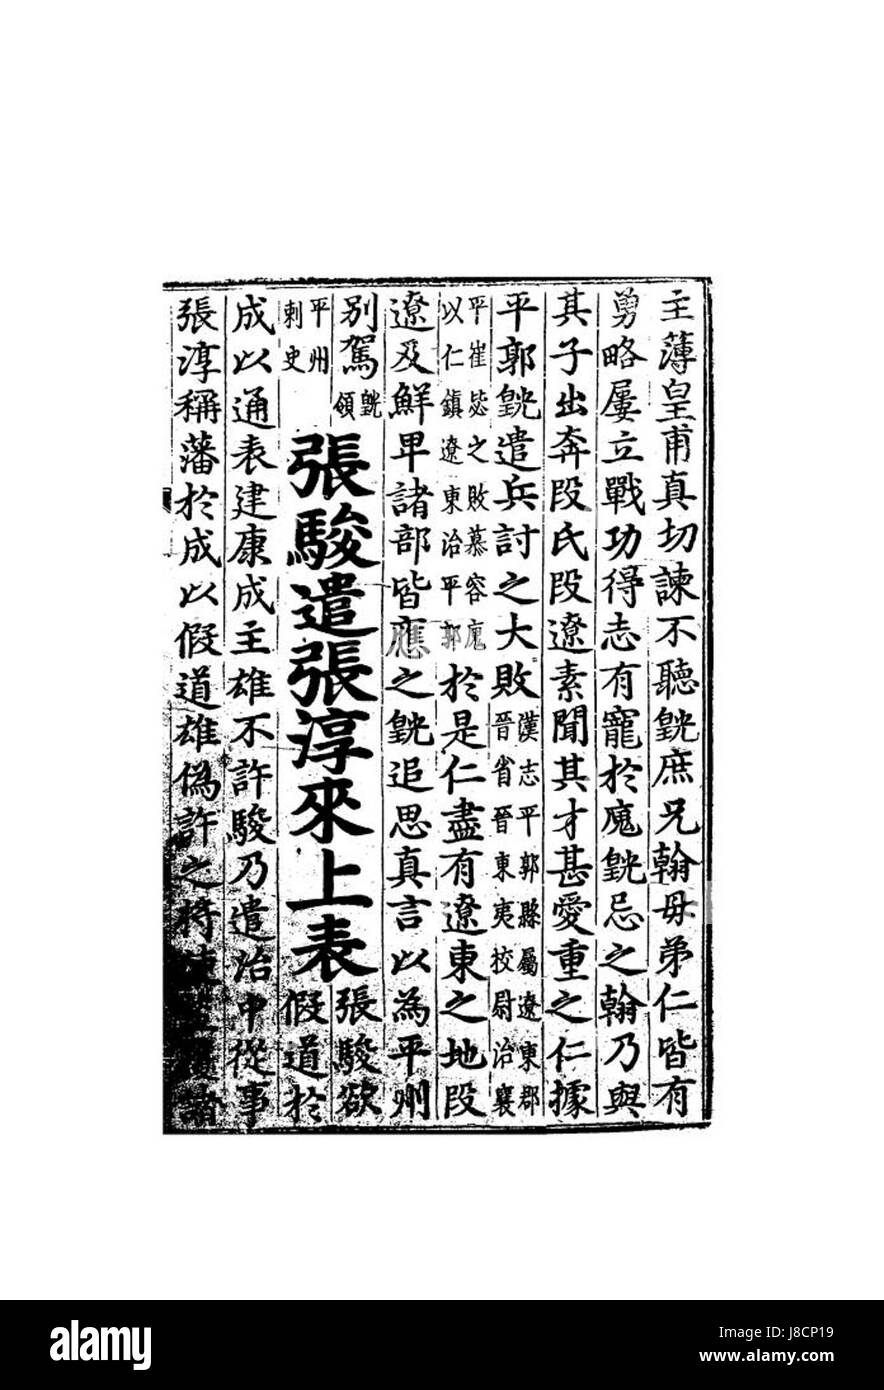 主薄皇甫真切諫不聽皝庶兄翰母弟仁皆有
勇略屡立戰功得志有寵於廆皝忌之翰乃與
其子出奔段氏段遼素聞其才甚愛重之仁據
平郭皝遣兵討之大敗漢志平郭縣屬遼東郡晉省晉東夷校尉治襄
平崔毖之敗慕容廆以仁鎮遼東治平郭於是仁盡有遼東之地段
遼及鮮卑諸部皆應之皝追思真言以為平州
別駕皝領平州刺史
張駿遣張淳來上表張駿欲假道於
成以通表建康成主雄不許駿乃遣治中從事
張淳稱藩於成以假道雄偽許之將
alamy
Image ID: J8CP19
www.alamy.com